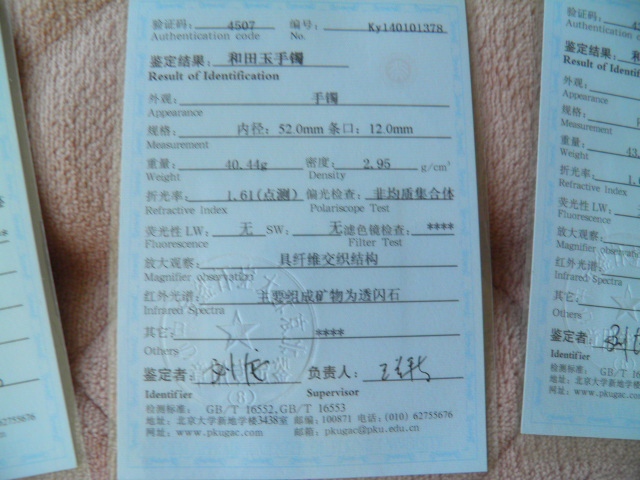 验证码: 4507 编号: Ky140101378
Authentication code No.
鉴定结果: 和田玉手镯
Result of Identification
外观: 手镯
Appearance
规格: 内径: 52.0mm 条口: 12.0mm
Measurement
重量: 40.44g 密度: 2.95 g/cm³
Weight Density
折光率: 1.61(点测) 偏光检查: 非均质集合体
Refractive Index Polariscope Test
荧光性 LW: 无 SW: 无 滤色镜检查: ****
Fluorescence Filter Test
放大观察: 具纤维交织结构
Magnifier observation
红外光谱: 主要组成矿物为透闪石
Infrared Spectra
其它: ****
Others
鉴定者: 负责人:
Identifier Supervisor
检测标准: GB/T 16552,GB/T 16553
地址: 北京大学新地学楼3438室 邮编: 100871 电话: (010) 62755676
网址: www.pkugac.com 邮箱: pkugac@pku.edu.cn
验证码:
Authentication
鉴定结果:
Result of Identif
外观:
Appearance
规格:
Measurement
重量: 43.
Weight
折光率: 1.
Refractive Index
荧光性 LW:
Fluorescence
放大观察:
Magnifier obser
红外光谱:
Infrared Spectra
其它:
Others
鉴定者:
Identifier
检测标准: GB/T
地址: 北京大学新地学
网址: www.pkuga
55676